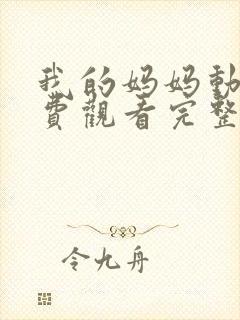 我的妈妈動
費觀看完整
令九舟